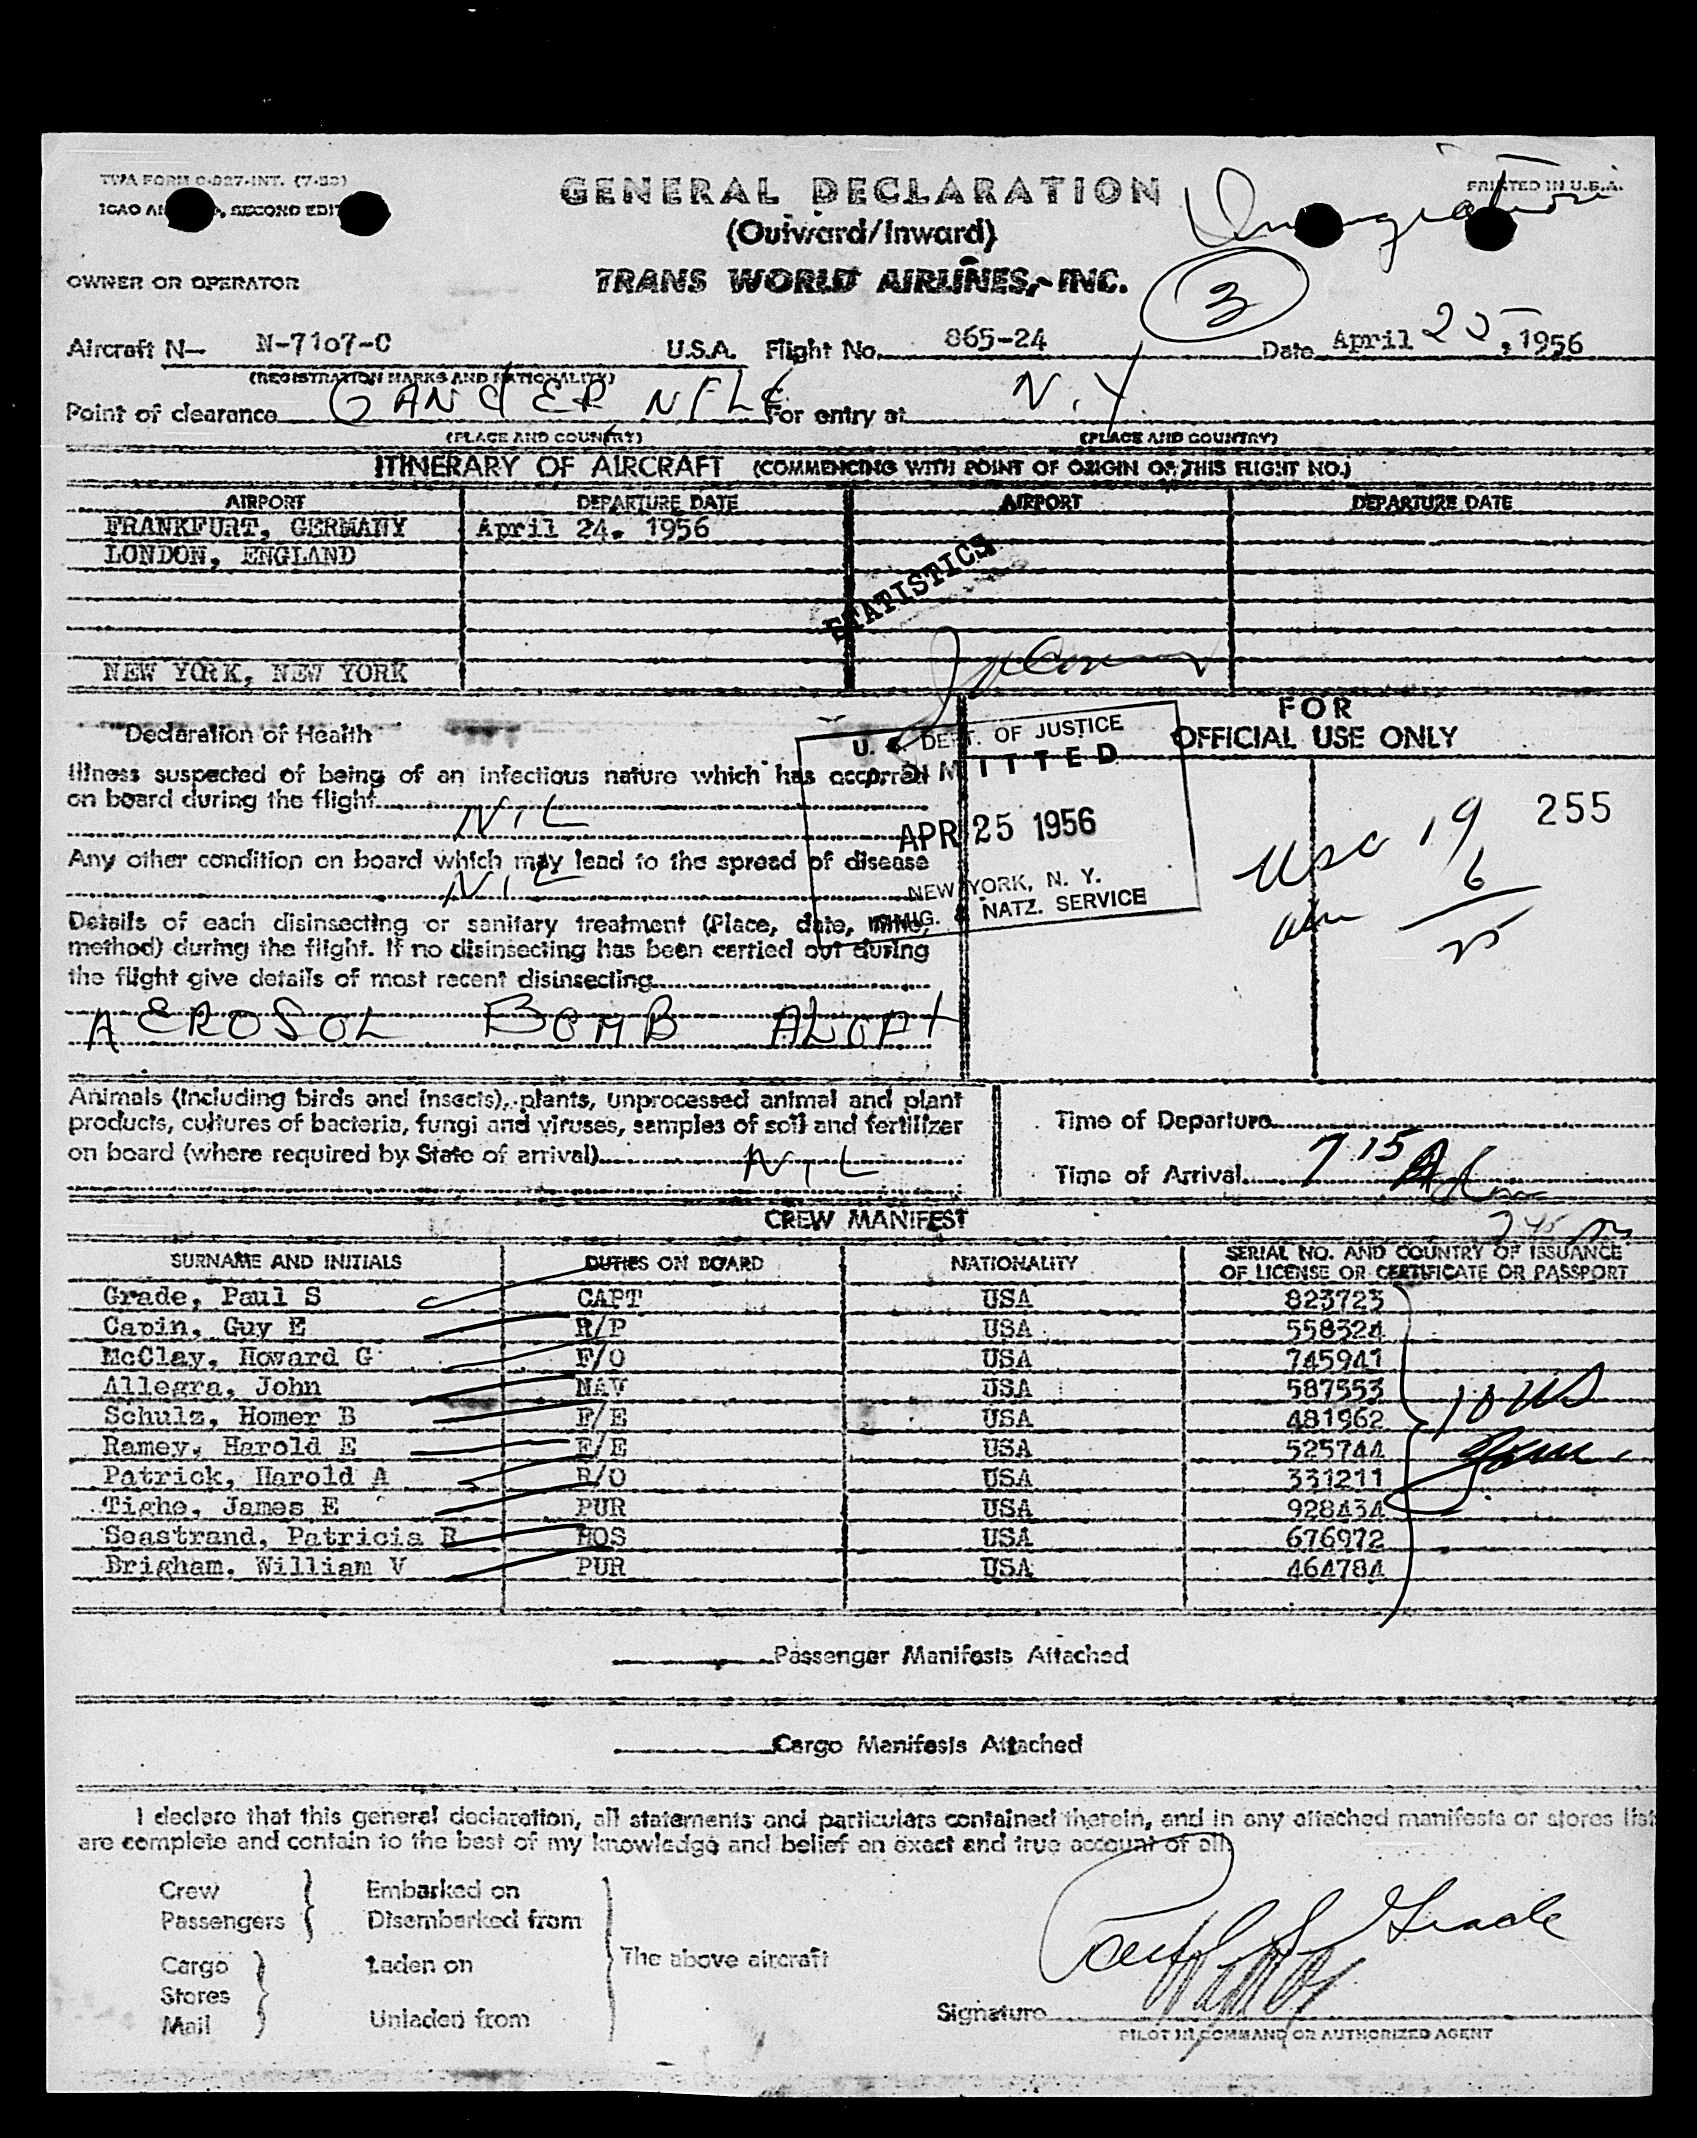 TWA FORM O-327-INT. (7-53)
PRINTED IN U.S.A.
ICAO AN , SECOND EDIT
GENERAL DECLARATION
Immigration
(Outward/Inward)
OWNER OR OPERATOR
TRANS WORLD AIRLINES, INC.
3
Aircraft N— N-7107-C U.S.A. Flight No. 865-24 Date April 25, 1956
(REGISTRATION MARKS AND NATIONALITY)
Point of clearance GANdER NFLd For entry at N.Y.
(PLACE AND COUNTRY) (PLACE AND COUNTRY)
ITINERARY OF AIRCRAFT (COMMENCING WITH POINT OF ORIGIN OF THIS FLIGHT NO.)
AIRPORT DEPARTURE DATE AIRPORT DEPARTURE DATE
FRANKFURT, GERMANY April 24, 1956
LONDON, ENGLAND
STATISTICS
NEW YORK, NEW YORK
FOR
OFFICIAL USE ONLY
Declaration of Health
U. S. DEPT. OF JUSTICE
ADMITTED
APR 25 1956
NEW YORK, N. Y.
IMMIG. & NATZ. SERVICE
Illness suspected of being of an infectious nature which has occurred
on board during the flight NiL
255
USC 19
6
25
Any other condition on board which may lead to the spread of disease
NiL
Details of each disinsecting or sanitary treatment (Place, date, time,
method) during the flight. If no disinsecting has been carried out during
the flight give details of most recent disinsecting
AEROSOL BOMB ALOFT
Animals (including birds and insects), plants, unprocessed animal and plant
products, cultures of bacteria, fungi and viruses, samples of soil and fertilizer
on board (where required by State of arrival) NiL
Time of Departure
Time of Arrival 7 15 A
7 45
CREW MANIFEST
SURNAME AND INITIALS DUTIES ON BOARD NATIONALITY SERIAL NO. AND COUNTRY OF ISSUANCE
OF LICENSE OR CERTIFICATE OR PASSPORT
Grade, Paul S CAPT USA 823723
Capin, Guy E R/P USA 558324
McClay, Howard G F/O USA 745941
Allegra, John NAV USA 587553
Schulz, Homer B F/E USA 481962
Ramey, Harold E F/E USA 525744
Patrick, Harold A R/O USA 331211
Tighe, James E PUR USA 928434
Seastrand, Patricia R HOS USA 676972
Brigham, William V PUR USA 464784
10 US
Passenger Manifests Attached
Cargo Manifests Attached
I declare that this general declaration, all statements and particulars contained therein, and in any attached manifests or stores list
are complete and contain to the best of my knowledge and belief an exact and true account of all
Crew
Passengers
Embarked on
Disembarked from
Cargo
Stores
Mail
Laden on
Unladen from
The above aircraft
Paul S. Grade
Signature
PILOT IN COMMAND OR AUTHORIZED AGENT